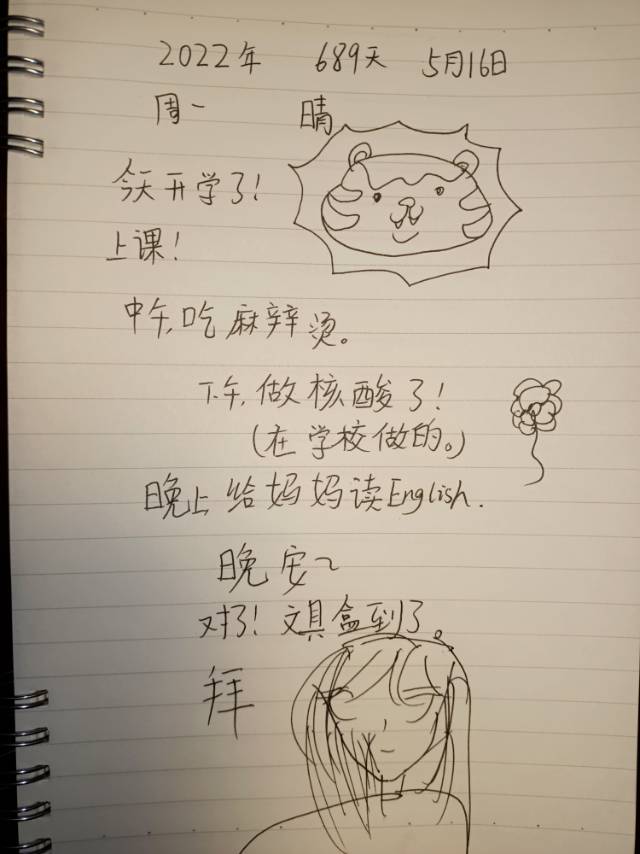 2022年 689天 5月16日
周一 晴
今天开学了!
上课!
中午,吃麻辣烫。
下午,做核酸了!
(在学校做的。)
晚上给妈妈读English.
晚安~
对了!文具盒到了。
拜